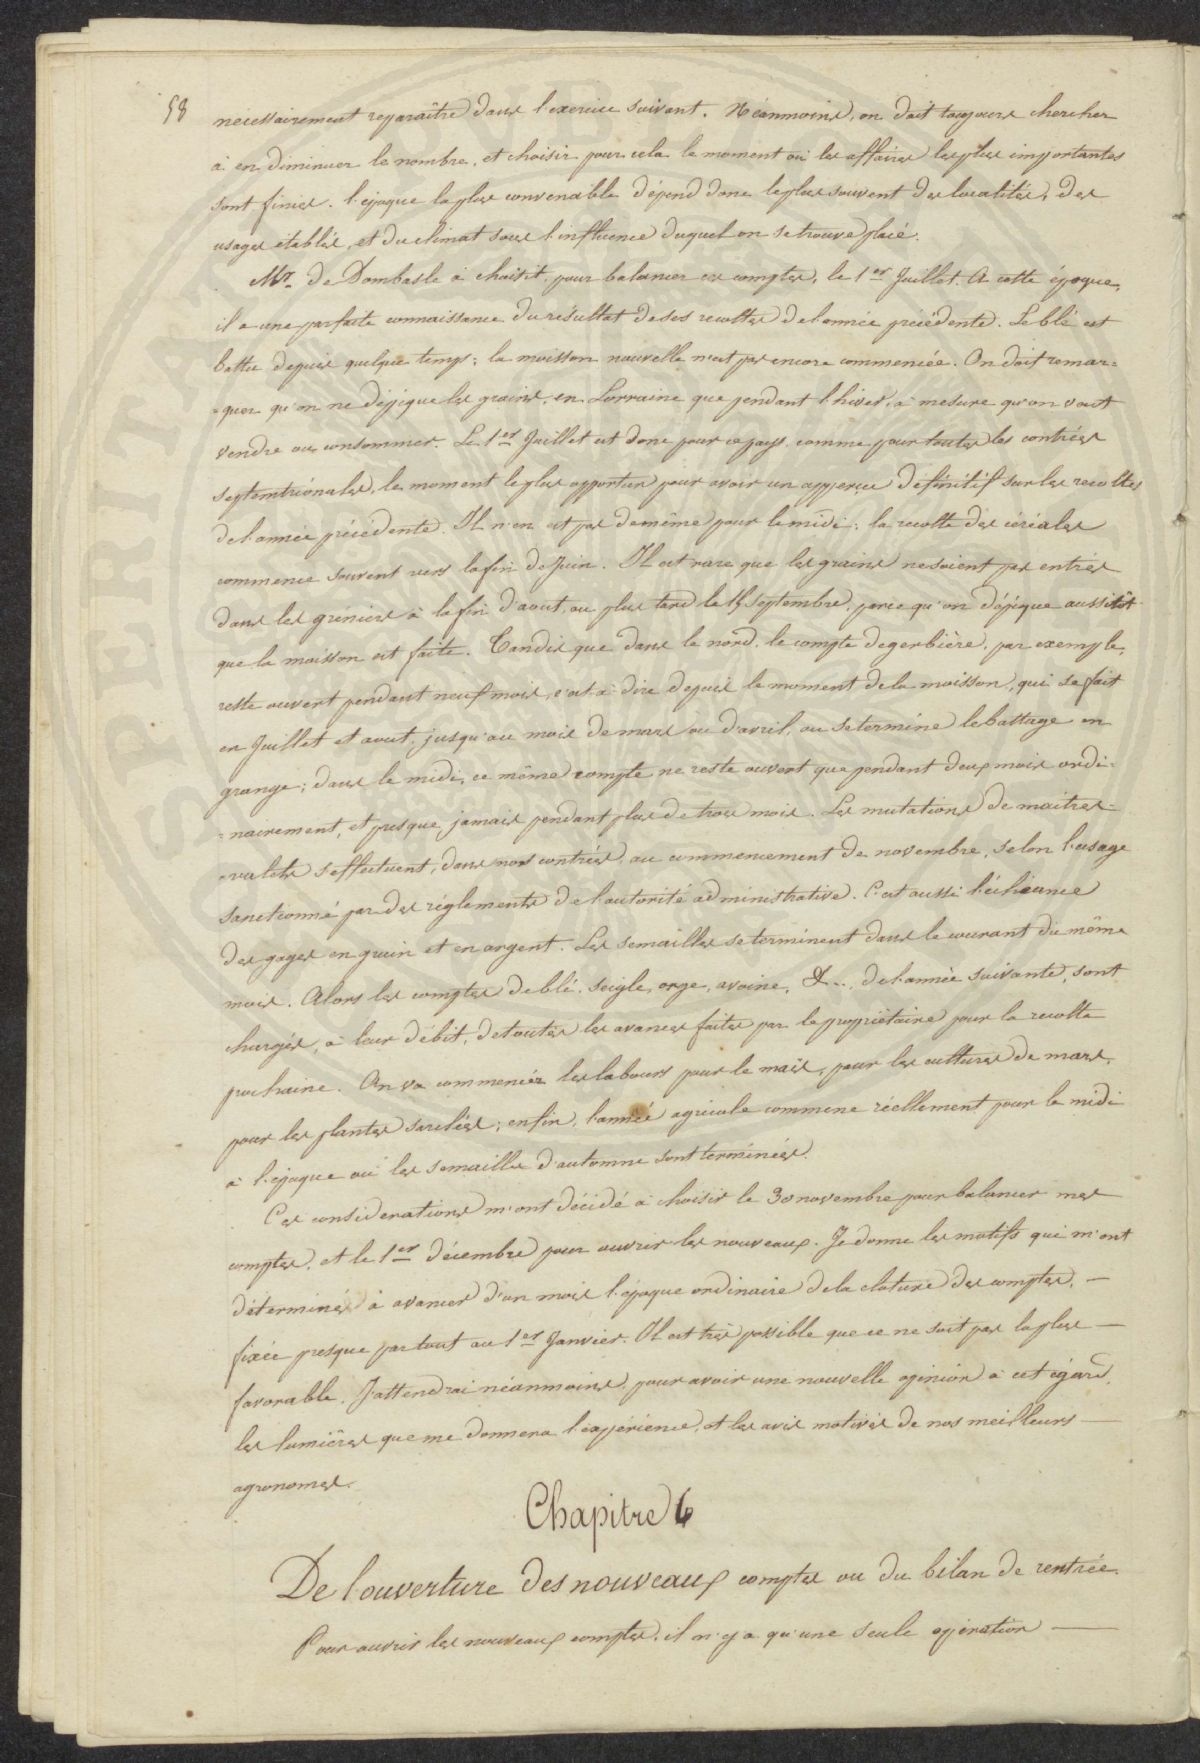 58
nécessairement reparaître dans l'exercice suivant. Néanmoins, on doit toujours chercher
à en diminuer le nombre, et choisir pour cela le moment où les affaires les plus importantes
sont finies. l'époque la plus convenable dépend donc le plus souvent des localités, des
usages établis, et du climat sous l'influence duquel on se trouve placé.
Mr. de Dombasle à choisit, pour balancer ses comptes, le 1er Juillet. A cette époque,
il a une parfaite connaissance du résultat de ses recoltes de l'année précédente. Le blé est
battu depuis quelque temps; la moisson nouvelle n'est pas encore commencée. On doit remar=
=quer qu'on ne dépique les grains, en Lorraine que pendant l'hiver, à mesure qu'on veut
vendre ou consommer. Le 1er Juillet est donc pour ce pays, comme pour toutes les contrées
septentrionales, le moment le plus opportun pour avoir un apperçu définitif sur les recoltes
de l'année précédente. Il n'en est pas de même pour le midi: la recolte des céréales
commence souvent vers la fin de Juin. Il est rare que les grains ne soient pas entrés
dans les gréniers à la fin d'aout, ou plus tard le 15 septembre, parce qu'on dépique aussitôt
que la moisson est faite. Tandis que dans le nord, le compte de gerbière, par exemple,
reste ouvert pendant neuf mois, c'est à dire depuis le moment de la moisson, qui se fait
en Juillet et aout, jusqu'au mois de mars ou d'avril, ou se termine le battage en
grange; dans le midi, ce même compte ne reste ouvert que pendant deux mois ordi=
=nairement, et presque jamais pendant plus de trois mois. Les mutations de maitres=
=valets s'effectuent, dans nos contrées, au commencement de novembre, selon l'usage
sanctionné par des réglements de l'autorité administrative. C'est aussi l'échéance
des gages en grain et en argent. Les semailles se terminent dans le courant du même
mois. Alors les comptes de blé, seigle, orge, avoine, &... de l'année suivante, sont
chargés, à leur débit, de toutes les avances faites par le propriétaire pour la recolte
prochaine. On va commencer les labours pour le maïs, pour les cultures de mars,
pour les plantes sarclées; enfin, l'année agricole commence réellement pour le midi
à l'époque où les semailles d'automne sont terminées.
Ces considerations m'ont décidé à choisir le 30 novembre pour balancer mes
comptes, et le 1er décembre pour ouvrir les nouveaux. Je donne les motifs qui m'ont
déterminés à avancer d'un mois l'époque ordinaire de la cloture des comptes, —
fixée presque partout au 1er Janvier. Il est très possible que ce ne soit pas la plus —
favorable. J'attendrai néanmoins, pour avoir une nouvelle opinion à cet égard,
les lumières que me donnera l'expérience, et les avis motivés de nos meilleurs —
agronomes.
Chapitre 6
De l'ouverture des nouveaux comptes ou du bilan de rentrée.
Pour ouvrir les nouveaux comptes, il n'y a qu'une seule opération —